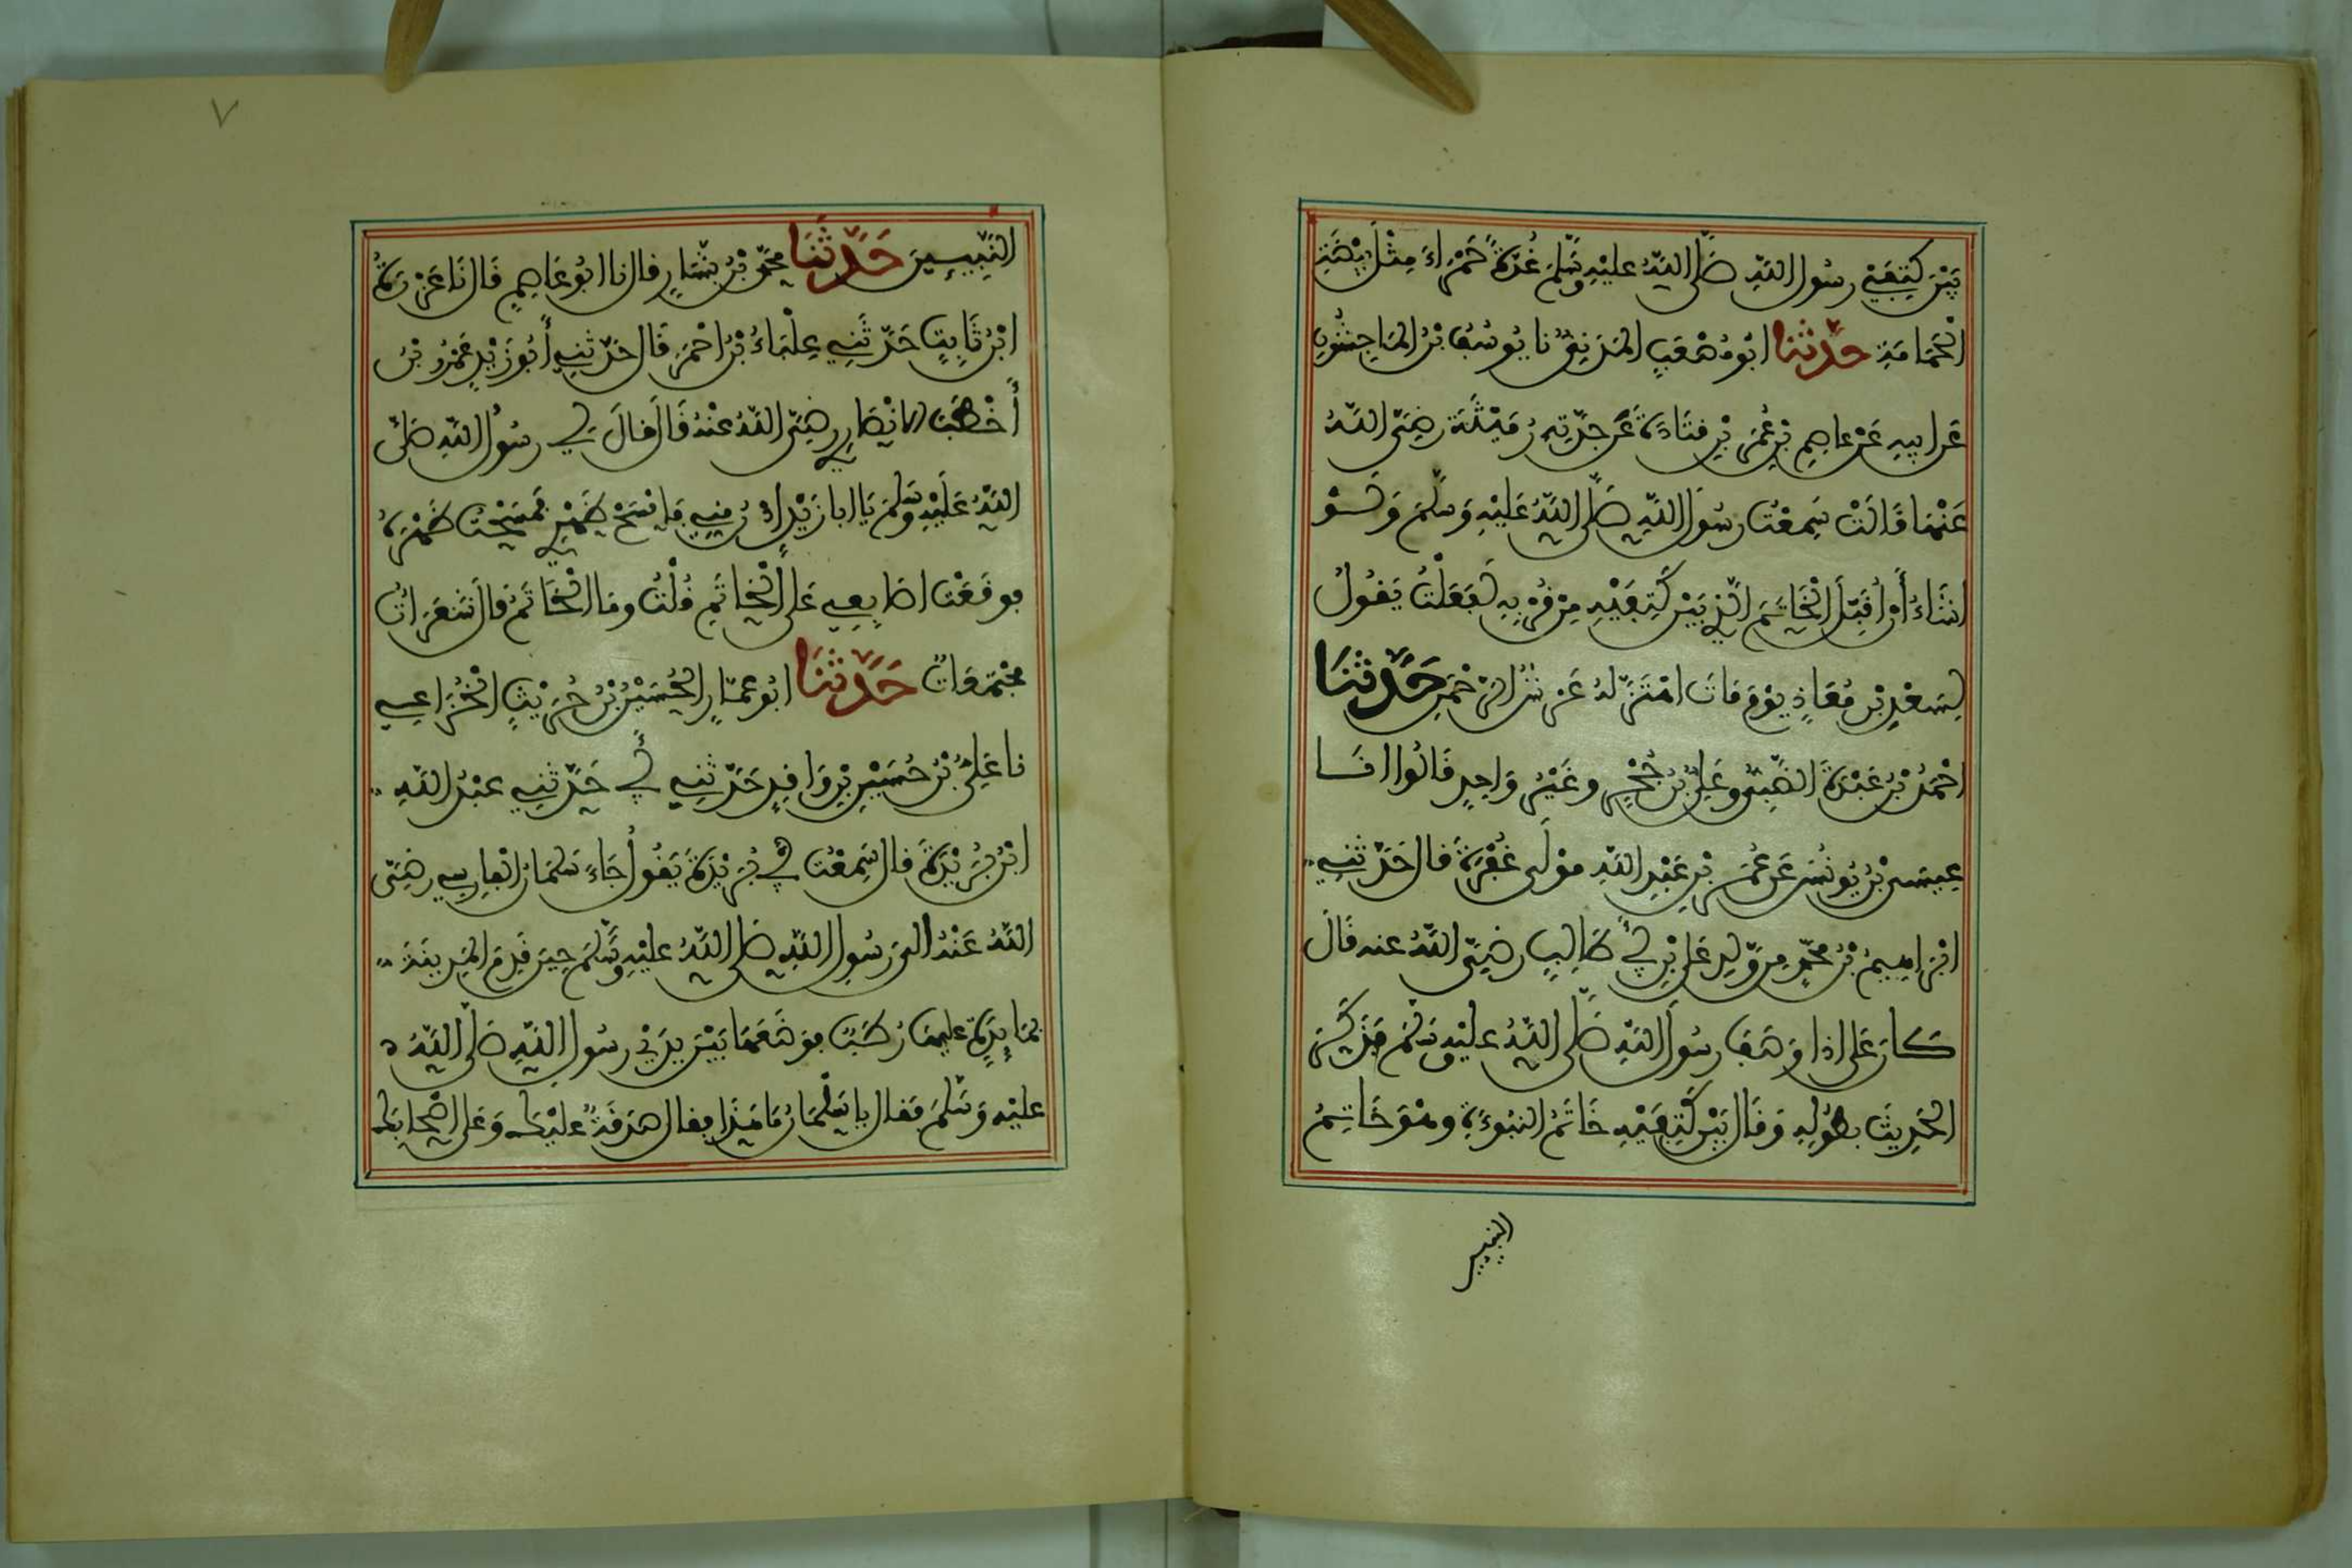 بَيْنَ كَتِفَيْ رسُول اللهِ صَلَّى اللهُ عليْهِ وَسَلَّمَ غُدَّةً حَمْرَاءَ مِثْلَ بَيْضَةِ
الْحَمَامَةِ حدّثنا ابُو مُصْعَبٍ المَدَنِيُّ نا يُوسُفُ بْنُ المَاجِشُونِ
عَن ابِيهِ عَنْ عاصِمِ بْنِ عُمَرَ بْنِ قتَادَةَ عَن جَدّتِهِ رُمَيْثَةَ رضِيَ اللهُ
عَنْهَا قَالَتْ سَمِعْتُ رسُولَ اللهِ صَلَّى اللهُ عَليْهِ وَسَلَّمَ وَلَوْ
اشَاءُ أَنْ اُقَبِّلَ الْخَاتَمَ الّذِي بَيْنَ كَتِفَيْهِ مِنْ قُرْبِهِ لَفَعَلْتُ يَقُولُ
لِسَعْدِ بْنِ مُعَاذٍ يَوْمَ مَاتَ اهْتَزَّ لهُ عَرْشُ الرّحْمَنِ حَدَّثنَا
احْمَدُ بْنُ عَبْدَةَ الضَّبِّيُّ وعَلِيُّ بْنُ حُجْرٍ وغَيْرُ وَاحِدٍ قَالُوا انَا
عِيسَى بْنُ يُونُسَ عَن عُمَرَ بْنِ عَبْدِ اللهِ مَوْلَى غُفْرَةَ قال حَدّثنِي
ابْرَاهِيمُ بْنُ محمّدٍ مِن وَلَدِ عَلي بْنِ أَبِي طَالِبٍ رضِيَ اللهُ عنه قَالَ
كَانَ عَلي اذا وَصَفَ رسُولَ اللهِ صَلَّى اللهُ عليْهِ وَسَلمَ فَذَكَرَ
الحَدِيثَ بطُولِهِ وَقَالَ بَيْنَ كَتِفَيْهِ خَاتَمُ النبُوءَةِ وهْوَ خَاتِمُ
النبيين
٧
النَّبِيينَ حَدَّثنَا محمّدُ بْنُ بَشّارٍ قال نا ابُو عَاصِمٍ قَال نَا عَزْرَةُ
ابْنُ ثَابِتٍ حَدّثَنِي عِلْبَاءُ بْنُ احْمَرَ قَال حَدّثنِي أَبُو زَيْدٍ عَمْرُو بْنُ
أَخْطَبَ الانْصَارِي رضِيَ اللهُ عنْهُ قَالَ قالَ لِي رسُولُ اللهِ صَلَّى
اللهُ عَلَيْهِ وَسَلمَ يَا ابا زَيْدٍ ادْنُ مِنِي فَامْسَحْ ظَهْرِي فَمَسَحْتُ ظَهْرَهُ
فوقَعْت اصَابِعِي عَلى الْخَاتَمِ قُلْتُ ومَا الْخَاتَمُ قال شَعَرَاتٌ
مجْتَمِعَاتٌ حَدَّثنَا ابُو عمّارٍ الحُسَيْنُ بْنُ حُرَيْثٍ الْخُزَاعِي
نا عَلِيُّ بْنُ حُسَيْنِ بْنِ وَاقِدٍ حَدّثنِي أَبِي حَدّثنِي عبْدُ اللهِ
ابْنُ بُرَيْدَةَ قال سَمِعْت أَبِي بُرَيْدَةَ يَقُولُ جَاءَ سَلمَانُ الْفارِسِي رضِيَ
اللهُ عَنْهُ الى رسُولِ اللهِ صَلى اللهُ عليْهِ وَسَلَّمَ حِينَ قَدِمَ المَدِينَةَ
بمَائِدَةٍ عليهَا رُطَبٌ فوضَعَهَا بَيْنَ يدَيْ رسُولِ اللهِ صَلَّى اللهُ
عليْهِ وَسَلّمَ فقال يا سَلْمَانُ مَا هَذَا فقال صَدَقَةٌ عليْكَ وَعَلى اصْحَابِكَ